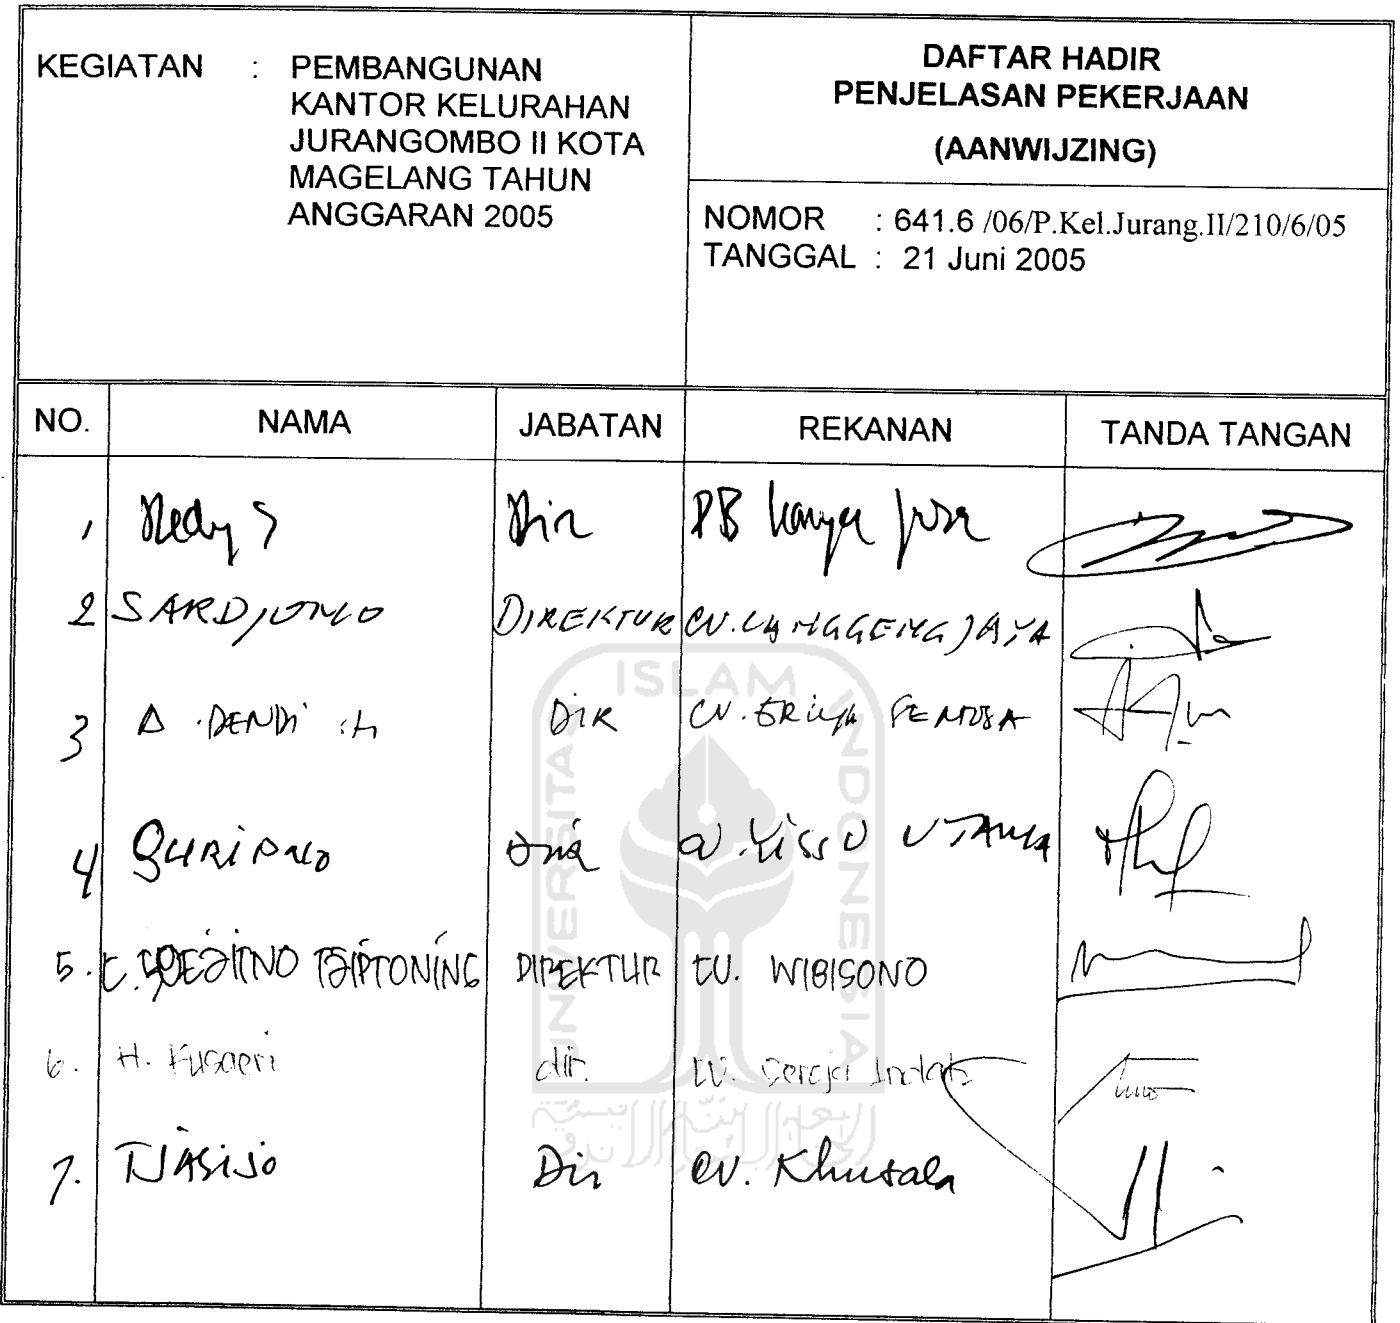 KEGIATAN : PEMBANGUNAN
KANTOR KELURAHAN
JURANGOMBO II KOTA
MAGELANG TAHUN
ANGGARAN 2005
DAFTAR HADIR
PENJELASAN PEKERJAAN
(AANWIJZING)
NOMOR : 641.6 /06/P.Kel.Jurang.II/210/6/05
TANGGAL : 21 Juni 2005
NO. NAMA JABATAN REKANAN TANDA TANGAN
1 S Dir PB karya jasa
2 SARDJONO DIREKTUR CV. LANGGENG JAYA
3 A. DENDI .H DIR CV. SENTOSA
4 CV. UTAMA
5. DIREKTUR CV. WIBISONO
6. H. Kusaeri dir. CV. Seroja Indah
7. TJASIJO Dir CV. Khusala
UNIVERSITAS ISLAM INDONESIA